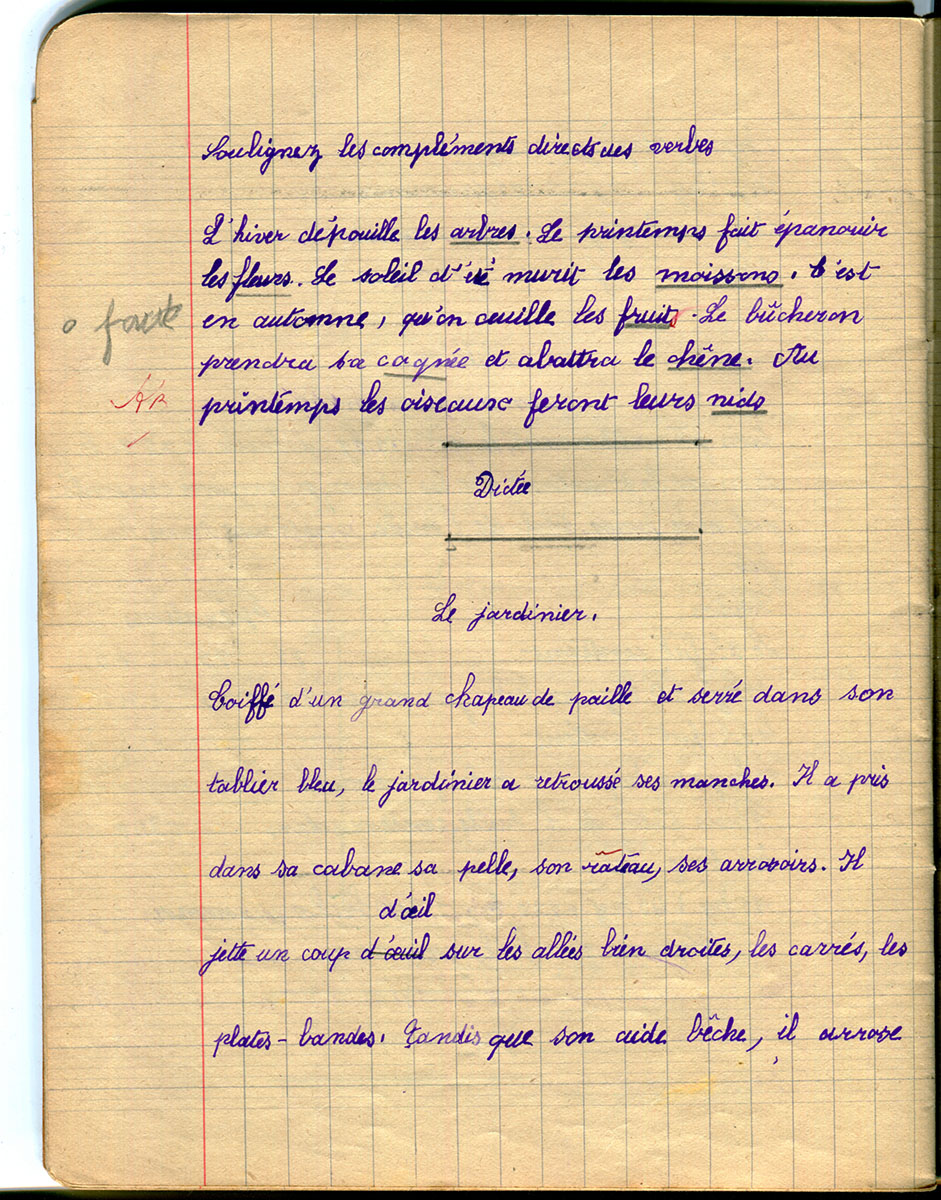 Soulignez les compléments directs des verbes
L'hiver dépouille les arbres. Le printemps fait épanouir
les fleurs. Le soleil d'été murit les moissons. C'est
en automne, qu'on ceuille les fruits. Le bûcheron
o faute
prendra sa cognée et abattra le chêne. Au
printemps les oiseaux feront leurs nids
Dictée
Le jardinier.
Coiffé d'un grand chapeau de paille et serré dans son
tablier bleu, le jardinier a retroussé ses manches. Il a pris
dans sa cabane sa pelle, son râteau, ses arrosoirs. Il
d'œil
jette un coup d'œuil sur les allées bien droites, les carrés, les
plates-bandes. Tandis que son aide bêche, il arrose